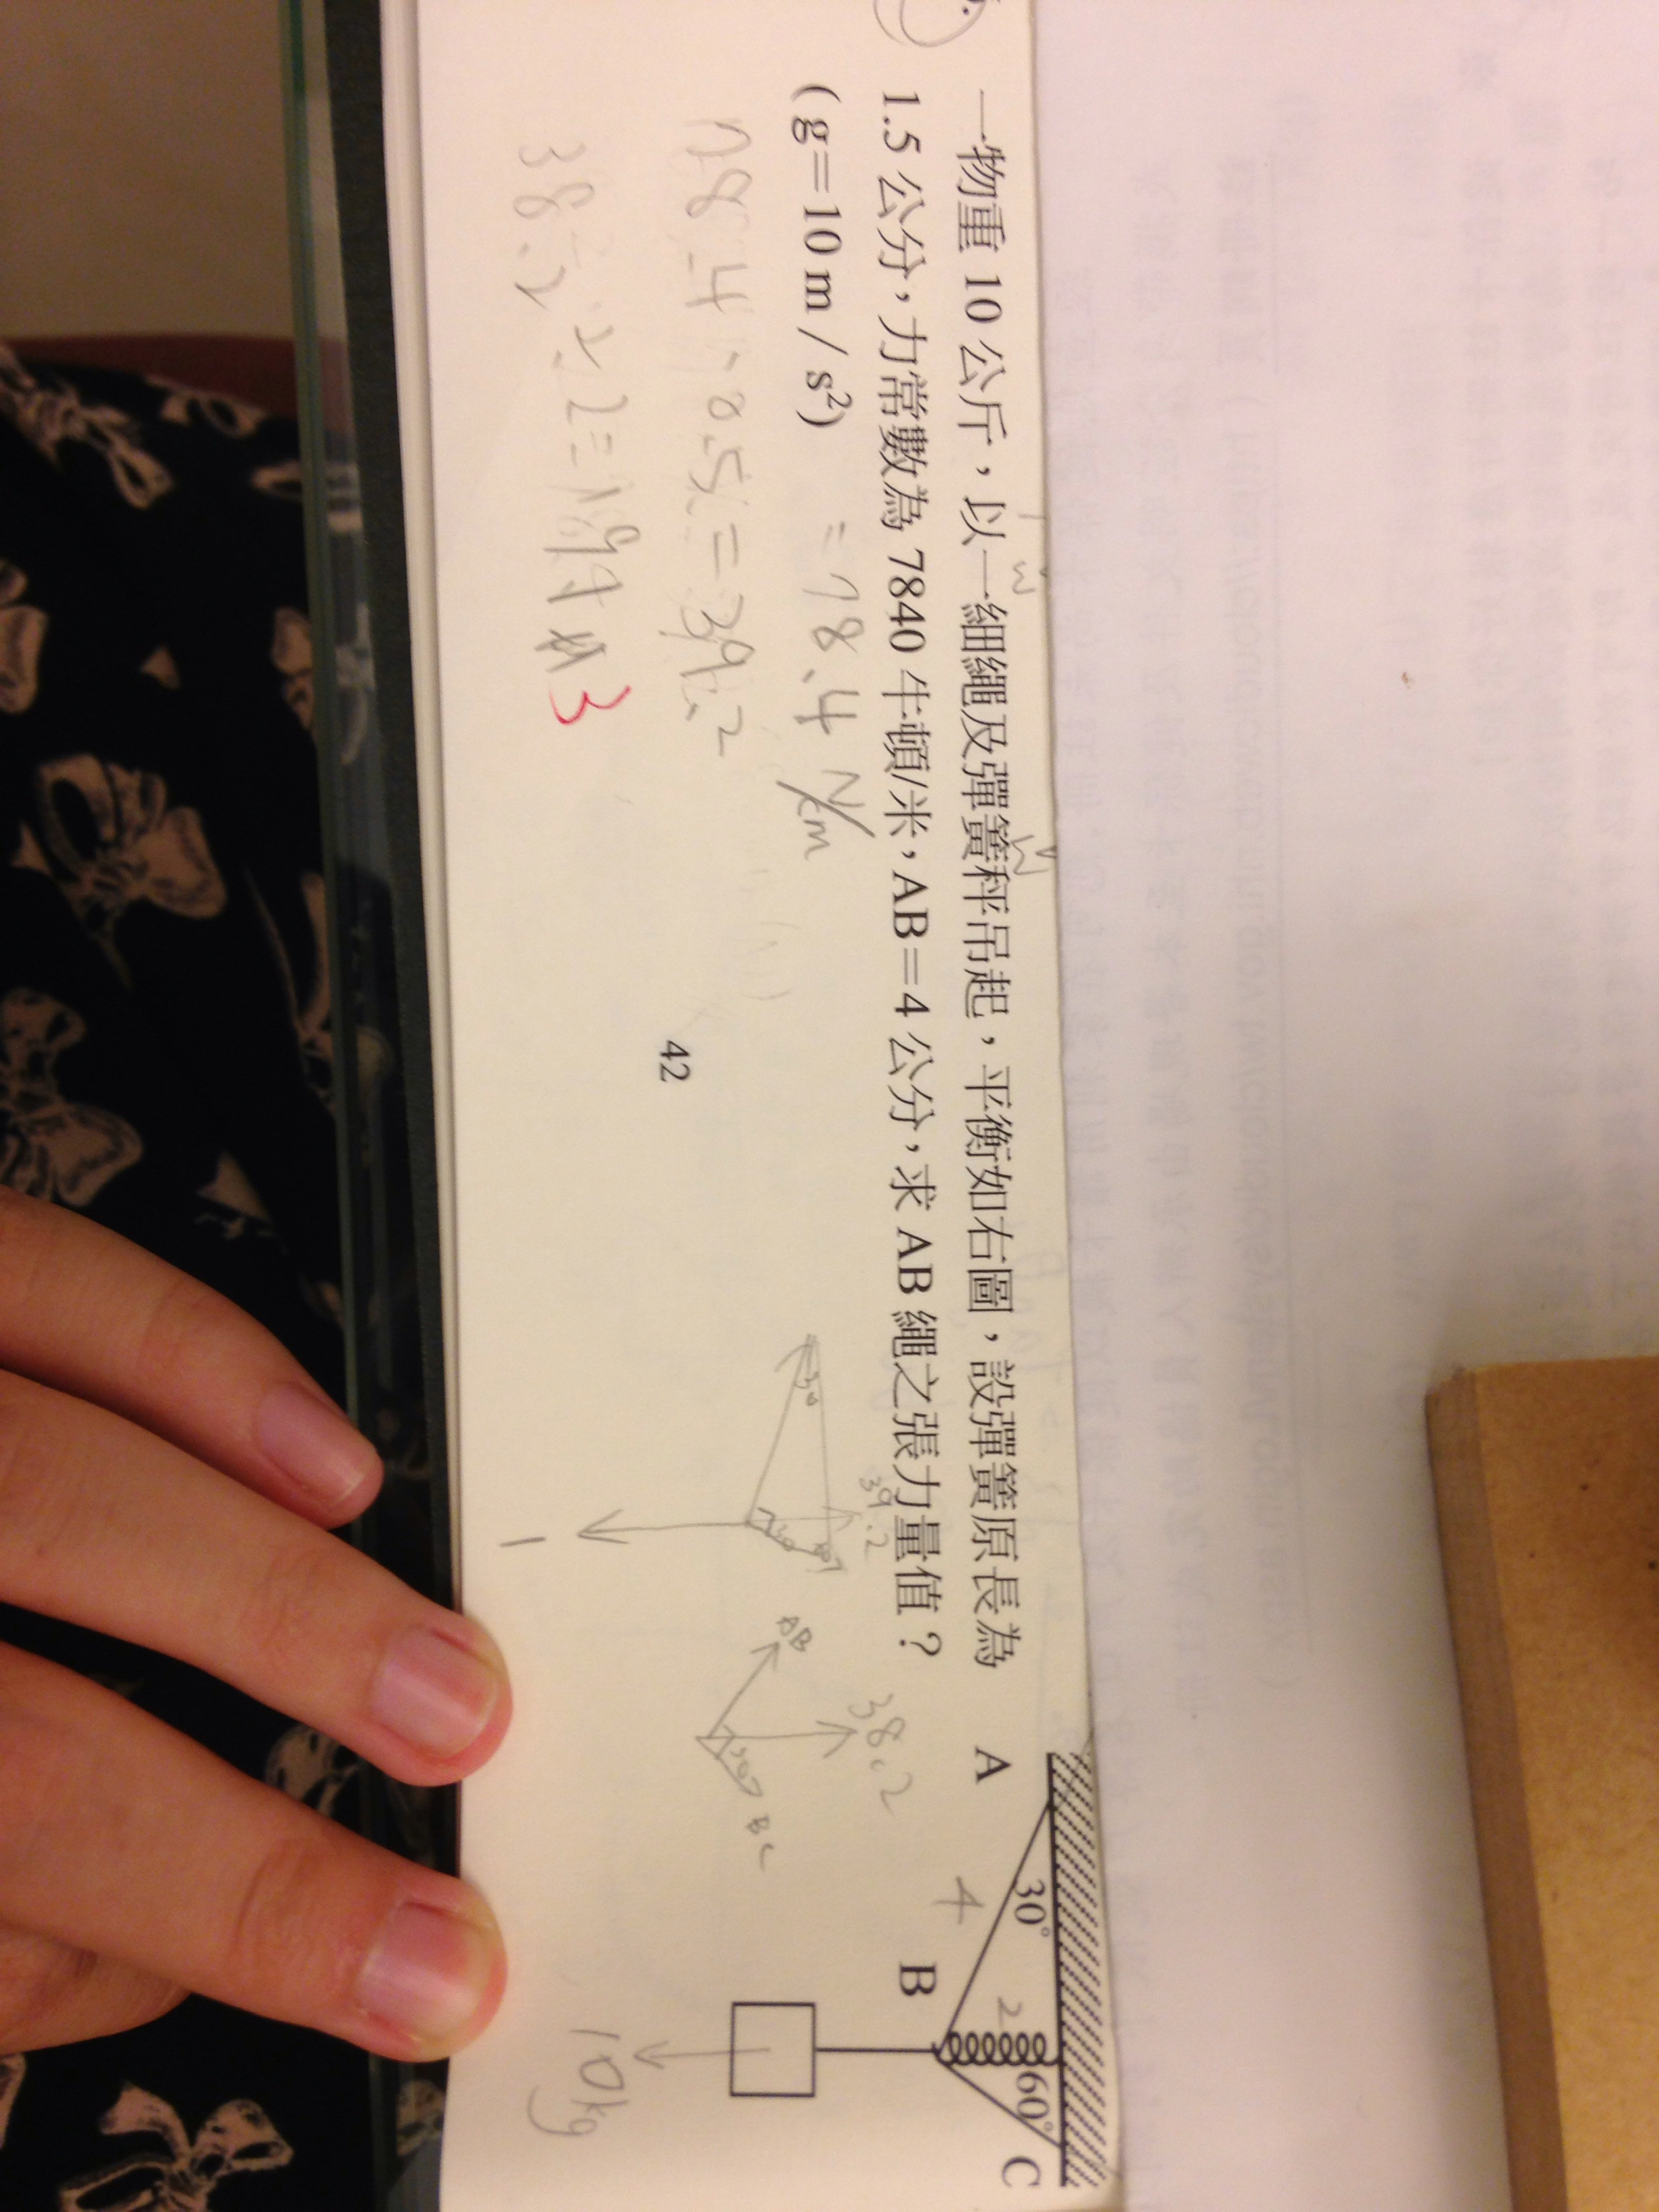 一物重 10 公斤，以一細繩及彈簧秤吊起，平衡如右圖，設彈簧原長為
1.5 公分，力常數為 7840 牛頓/米，AB＝4 公分，求 AB 繩之張力量值？
(g＝10 m / s²)
= 78.4 N/cm
78.4 × 0.5 = 39.2
3
42
30
39.2
AB
38.2
30
BC
A
30°
4
B
2
60°
C
10kg